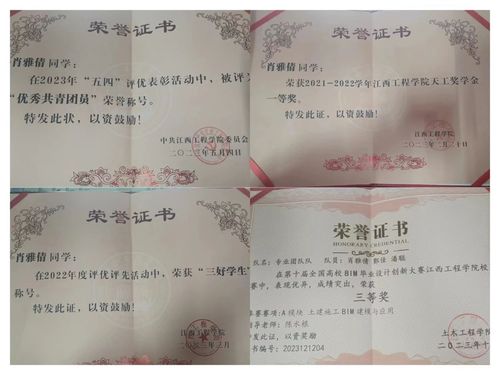 荣誉证书
肖雅倩同学：
在2023年“五四”评优表彰活动中，被评为
“优秀共青团员”荣誉称号。
特发此状，以资鼓励！
中共江西工程学院委员会
二〇二三年五月四日
荣誉证书
肖雅倩同学：
荣获2021-2022学年江西工程学院天工奖学金
一等奖。
特发此证，以资鼓励！
江西工程学院
二〇二三年二月二十日
荣誉证书
肖雅倩同学：
在2022年度评优评先活动中，荣获“三好学生”
称号。
特发此证，以资鼓励！
江西工程学院
二〇二三年三月
荣誉证书
HONORARY CREDENTIAL
队名：专业团队队 队员：肖雅倩 郭佳 潘聪
在第十届全国高校BIM毕业设计创新大赛江西工程学院校
赛中，表现优异，成绩突出，荣获
三等奖
赛赛项：A模块 土建施工BIM建模与应用
导老师：陈水根
发此证，以资奖励
书编号：2023121204
土木工程学院
二〇二三年十